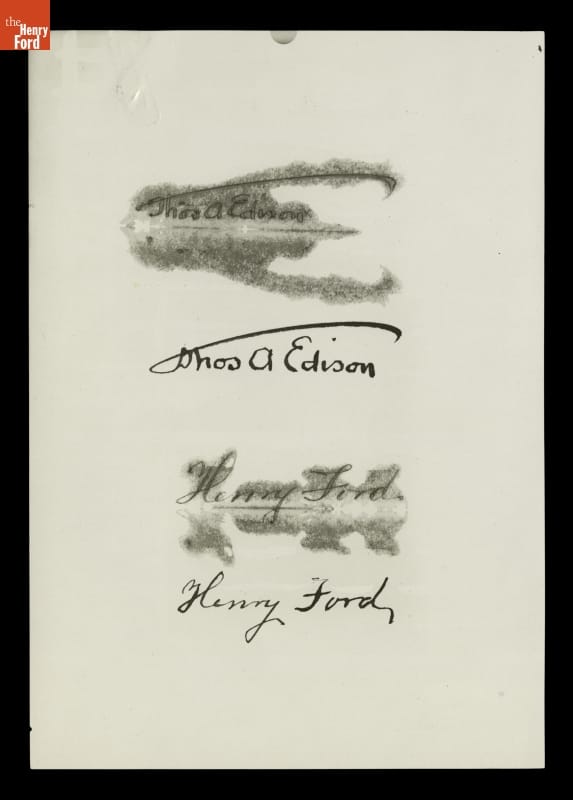 the
Henry
Ford
Thos A Edison
Thos A Edison
Henry Ford.
Henry Ford